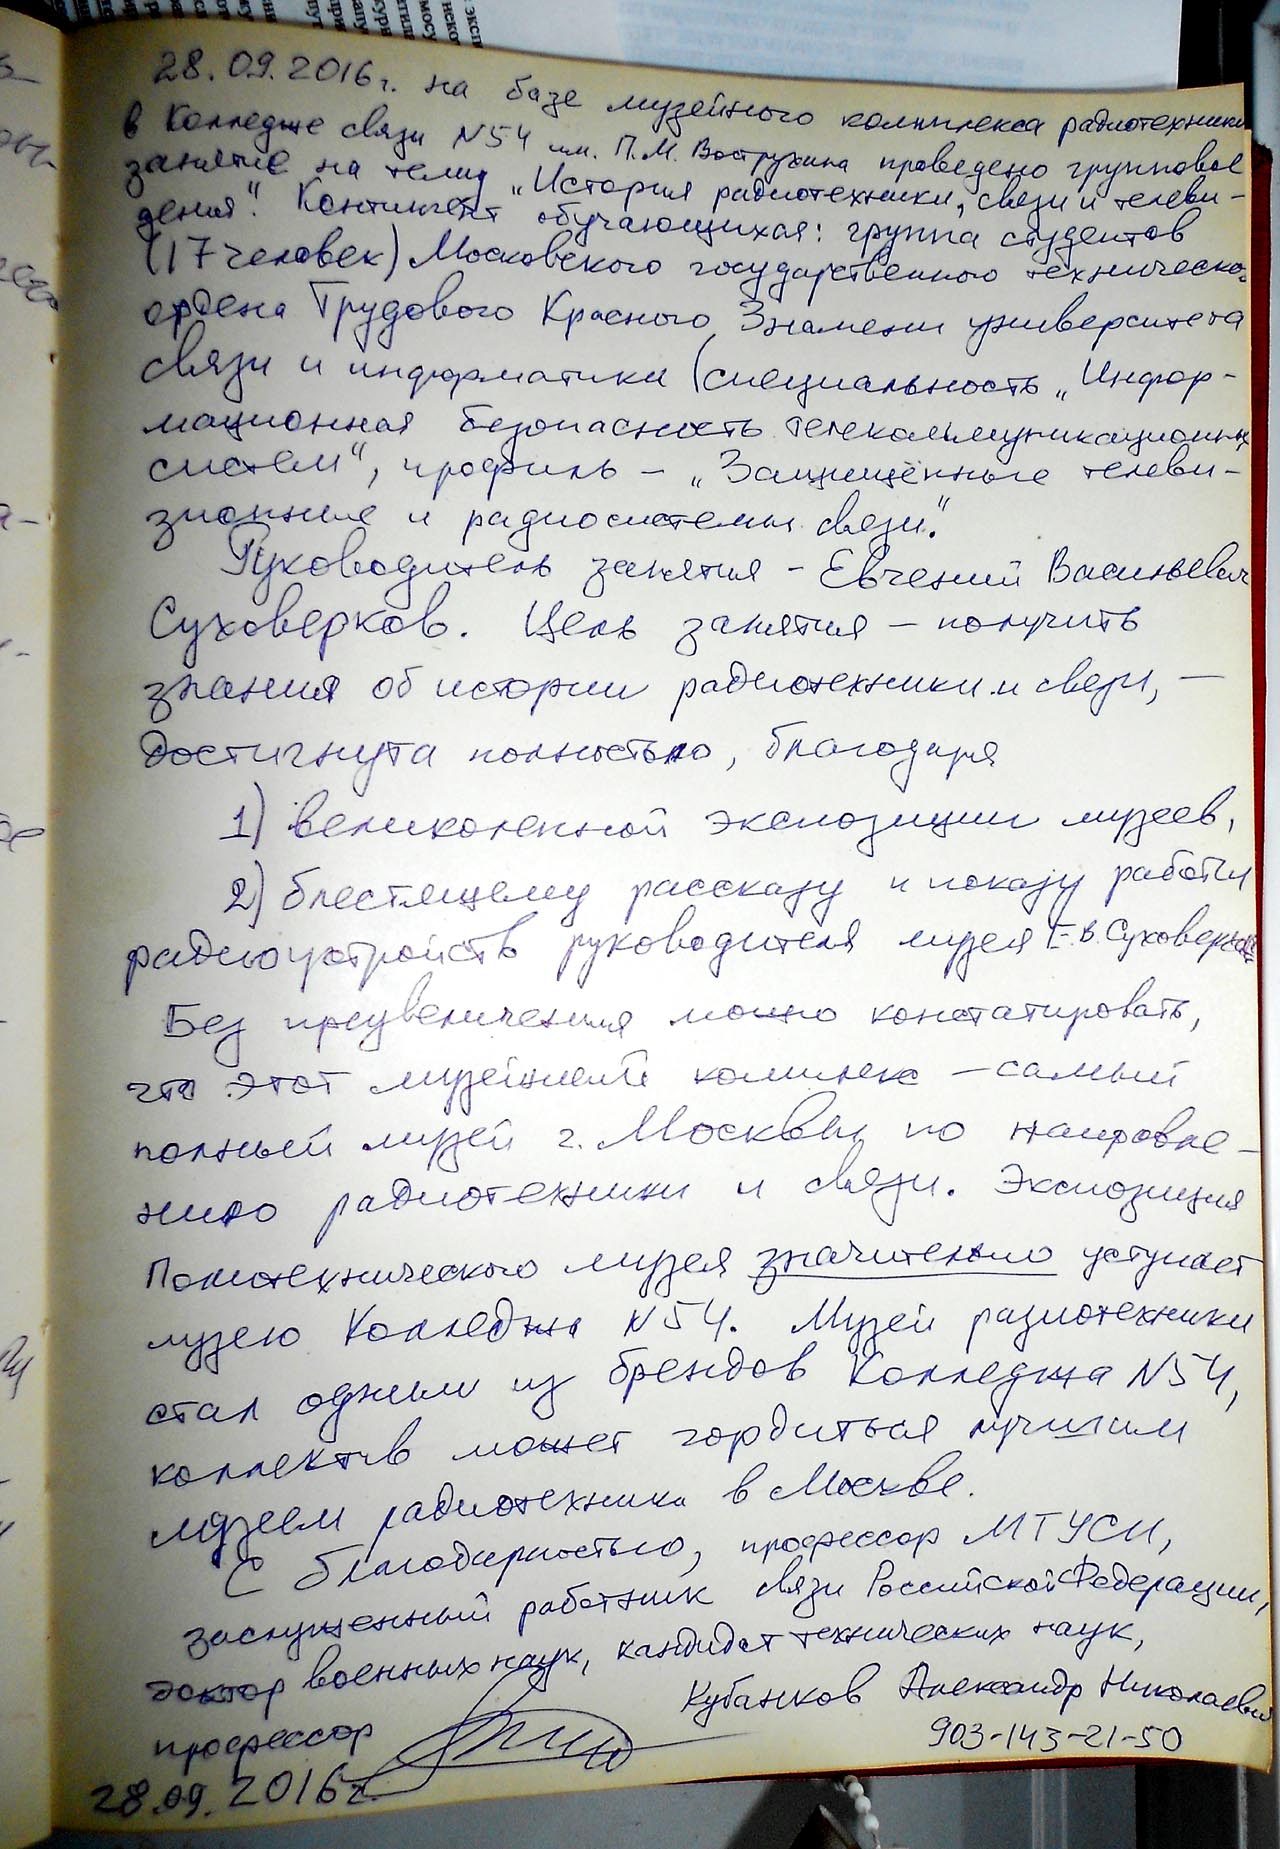 28.09.2016г. на базе музейного комплекса радиотехники
в Колледже связи N54 им. П.М. Вострухина проведено групповое
занятие на тему „История радиотехники, связи и телеви-
дения". Контингент обучающихся: группа студентов
(17 человек) Московского государственного технического
ордена Трудового Красного Знамени университета
связи и информатики (специальность „Инфор-
мационная безопасность телекоммуникационных
систем", профиль – „Защищённые телеви-
зионные и радиосистемы связи".
Руководитель занятия – Евгений Васильевич
Суховерков. Цель занятия – получить
знания об истории радиотехники и связи, –
достигнута полностью, благодаря
1) великолепной экспозиции музеев,
2) блестящему рассказу и показу работы
радиоустройств руководителя музея Е.В. Суховеркова
Без преувеличения можно констатировать,
что этот музейный комплекс – самый
полный музей г. Москвы по направле-
нию радиотехники и связи. Экспозиция
Политехнического музея значительно уступает
музею Колледжа N54. Музей радиотехники
стал одним из брендов Колледжа N54,
коллектив может гордиться лучшим
музеем радиотехники в Москве.
С благодарностью, профессор МТУСИ,
заслуженный работник связи Российской Федерации,
доктор военных наук, кандидат технических наук,
профессор Кубанков Александр Николаевич
903-143-21-50
28.09.2016г.